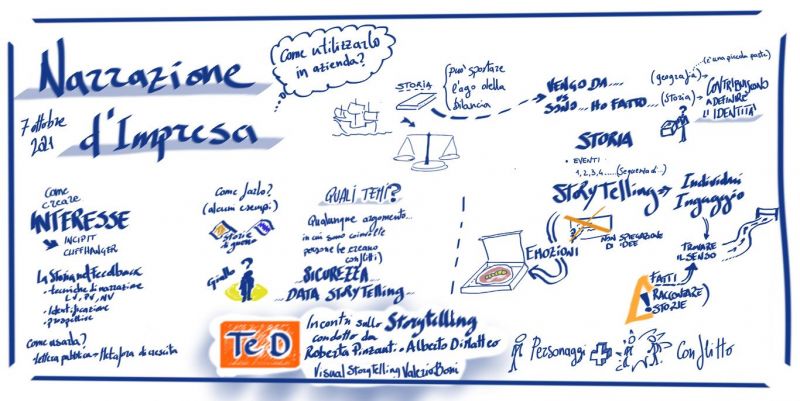 Narrazione
d'Impresa
7 ottobre
2021
Come utilizzarlo
in azienda?
STORIA
(può spostare
l'ago della
bilancia
VENGO DA....
vs
SONO... HO FATTO....
(geografia)
(Storia)
(è una piccola parte)
CONTRIBUISCONO
A DEFINIRE
L'IDENTITÀ
STORIA
• EVENTI
1,2,3,4.....(Sequenza di...)
STORYTELLING
Individui
Ingaggio
NON SPIEGAZIONE
DI IDEE
EMOZIONI
TROVARE
IL SENSO
FATTI
RACCONTARE
STORIE
Come
creare
INTERESSE
INCIPIT
CLIFFHANGER
La Storia nel Feedback
• tecniche di narrazione
• Identificazione
• prospettive
Come usarla?
lettera pubblica
Metafora di crescita
Come farlo?
(alcuni esempi)
Storie
di guerra
Giallo
QUALI TEMI?
Qualunque argomento...
in cui sono coinvolte
persone (e creano
conflitti)
SICUREZZA
DATA STORYTELLING
TeD
Incontri sullo Storytelling
condotto da
Roberta Pinzauti e Alberto DiMatteo
Visual StoryTelling Valerio Boni
Personaggi
Conflitto